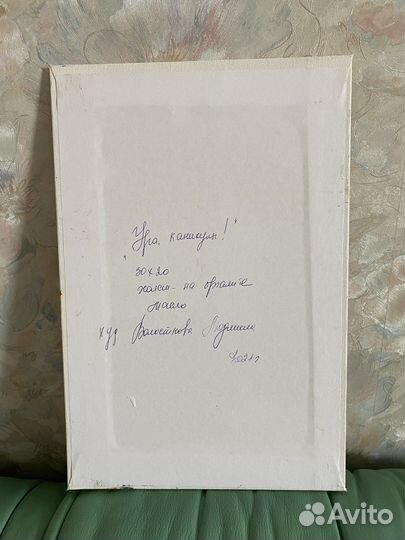 "Ура, каникулы!"
30х20
холст на оргалите
масло
худ Людмила
2021г.
Avito